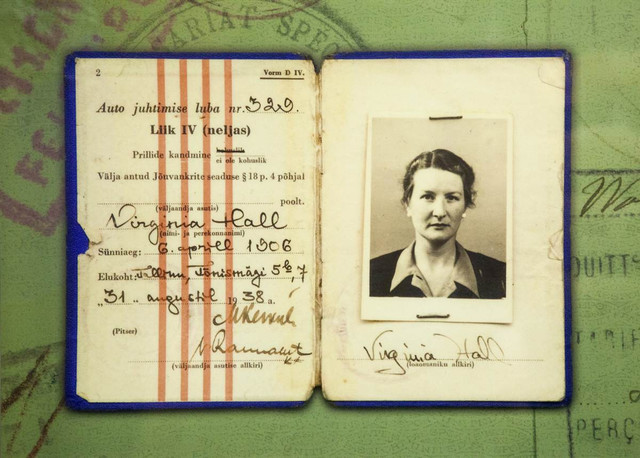 ARIAT SPÉC
2 Vorm D IV.
Auto juhtimise luba nr. 329.
Liik IV (neljas)
Prillide kandmine kohuslik
ei ole kohuslik
Välja antud Jõuvankrite seaduse § 18 p. 4 põhjal
poolt.
(väljaandja asutis)
Virginia Hall
(nimi- ja perekonnanimi)
Sünniaeg: 6. aprill 1906
Elukoht: Tallinn, Tõnismägi 5b, 7
"31" augustil 1938 a.
(Pitser)
(väljaandja asutise allkiri)
Virginia Hall
(loaomaniku allkiri)
PERÇ